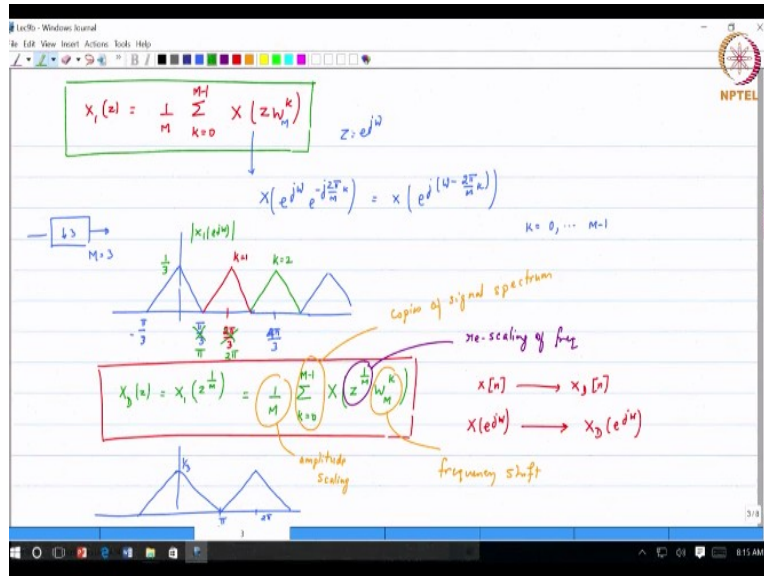 Lec9b - Windows Journal
File Edit View Insert Actions Tools Help
NPTEL
X₁(z) = 1/M Σ_{k=0}^{M-1} X(z W_M^k)
z = e^{jω}
X(e^{jω} e^{-j 2π/M k}) = X(e^{j(ω - 2π/M k)})
k = 0, ... M-1
↓3
M=3
|X₁(e^{jω})|
1/3
k=1
k=2
-π/3 π/3 2π/3 4π/3
π 2π
copies of signal spectrum
re-scaling of freq
X_D(z) = X₁(z^{1/M}) = 1/M Σ_{k=0}^{M-1} X(z^{1/M} W_M^k)
x[n] → x_D[n]
X(e^{jω}) → X_D(e^{jω})
amplitude scaling
frequency shift
1/3
π 2π
3
3/8
8:15 AM